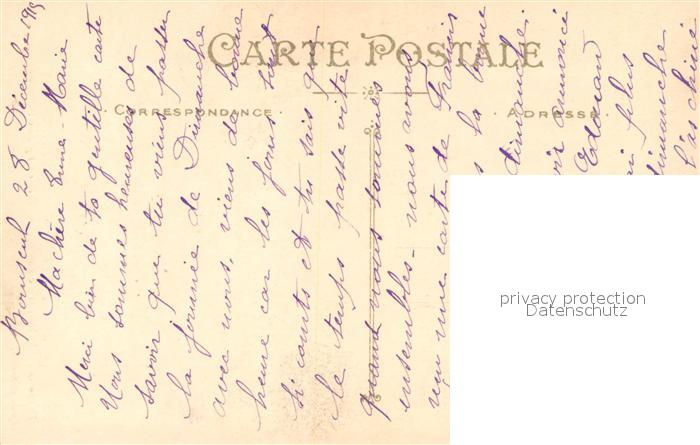 CARTE POSTALE
CORRESPONDANCE
ADRESSE
28 Décembre 1915
Ma chère Anne-Marie
Merci bien de ta gentille carte
Nous sommes heureuses de
savoir que tu viens passer
la journée de Dimanche
avec nous, viens de bonne
heure car les jours sont
si courts et tu sais que
le temps passe vite
quand nous sommes
ensembles - nous avons
reçu une carte de François
la bonne
dimanche
annoncé
Edouard
plus
dimanche
privacy protection
Datenschutz